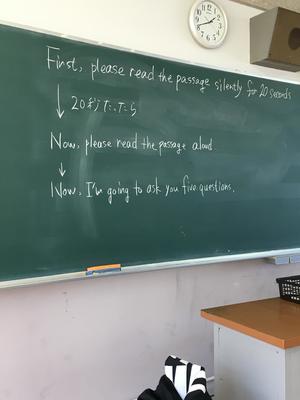 First, please read the passage silently for 20 seconds
↓ 20秒たったら
Now, please read the passage aloud
↓
Now, I'm going to ask you five questions.